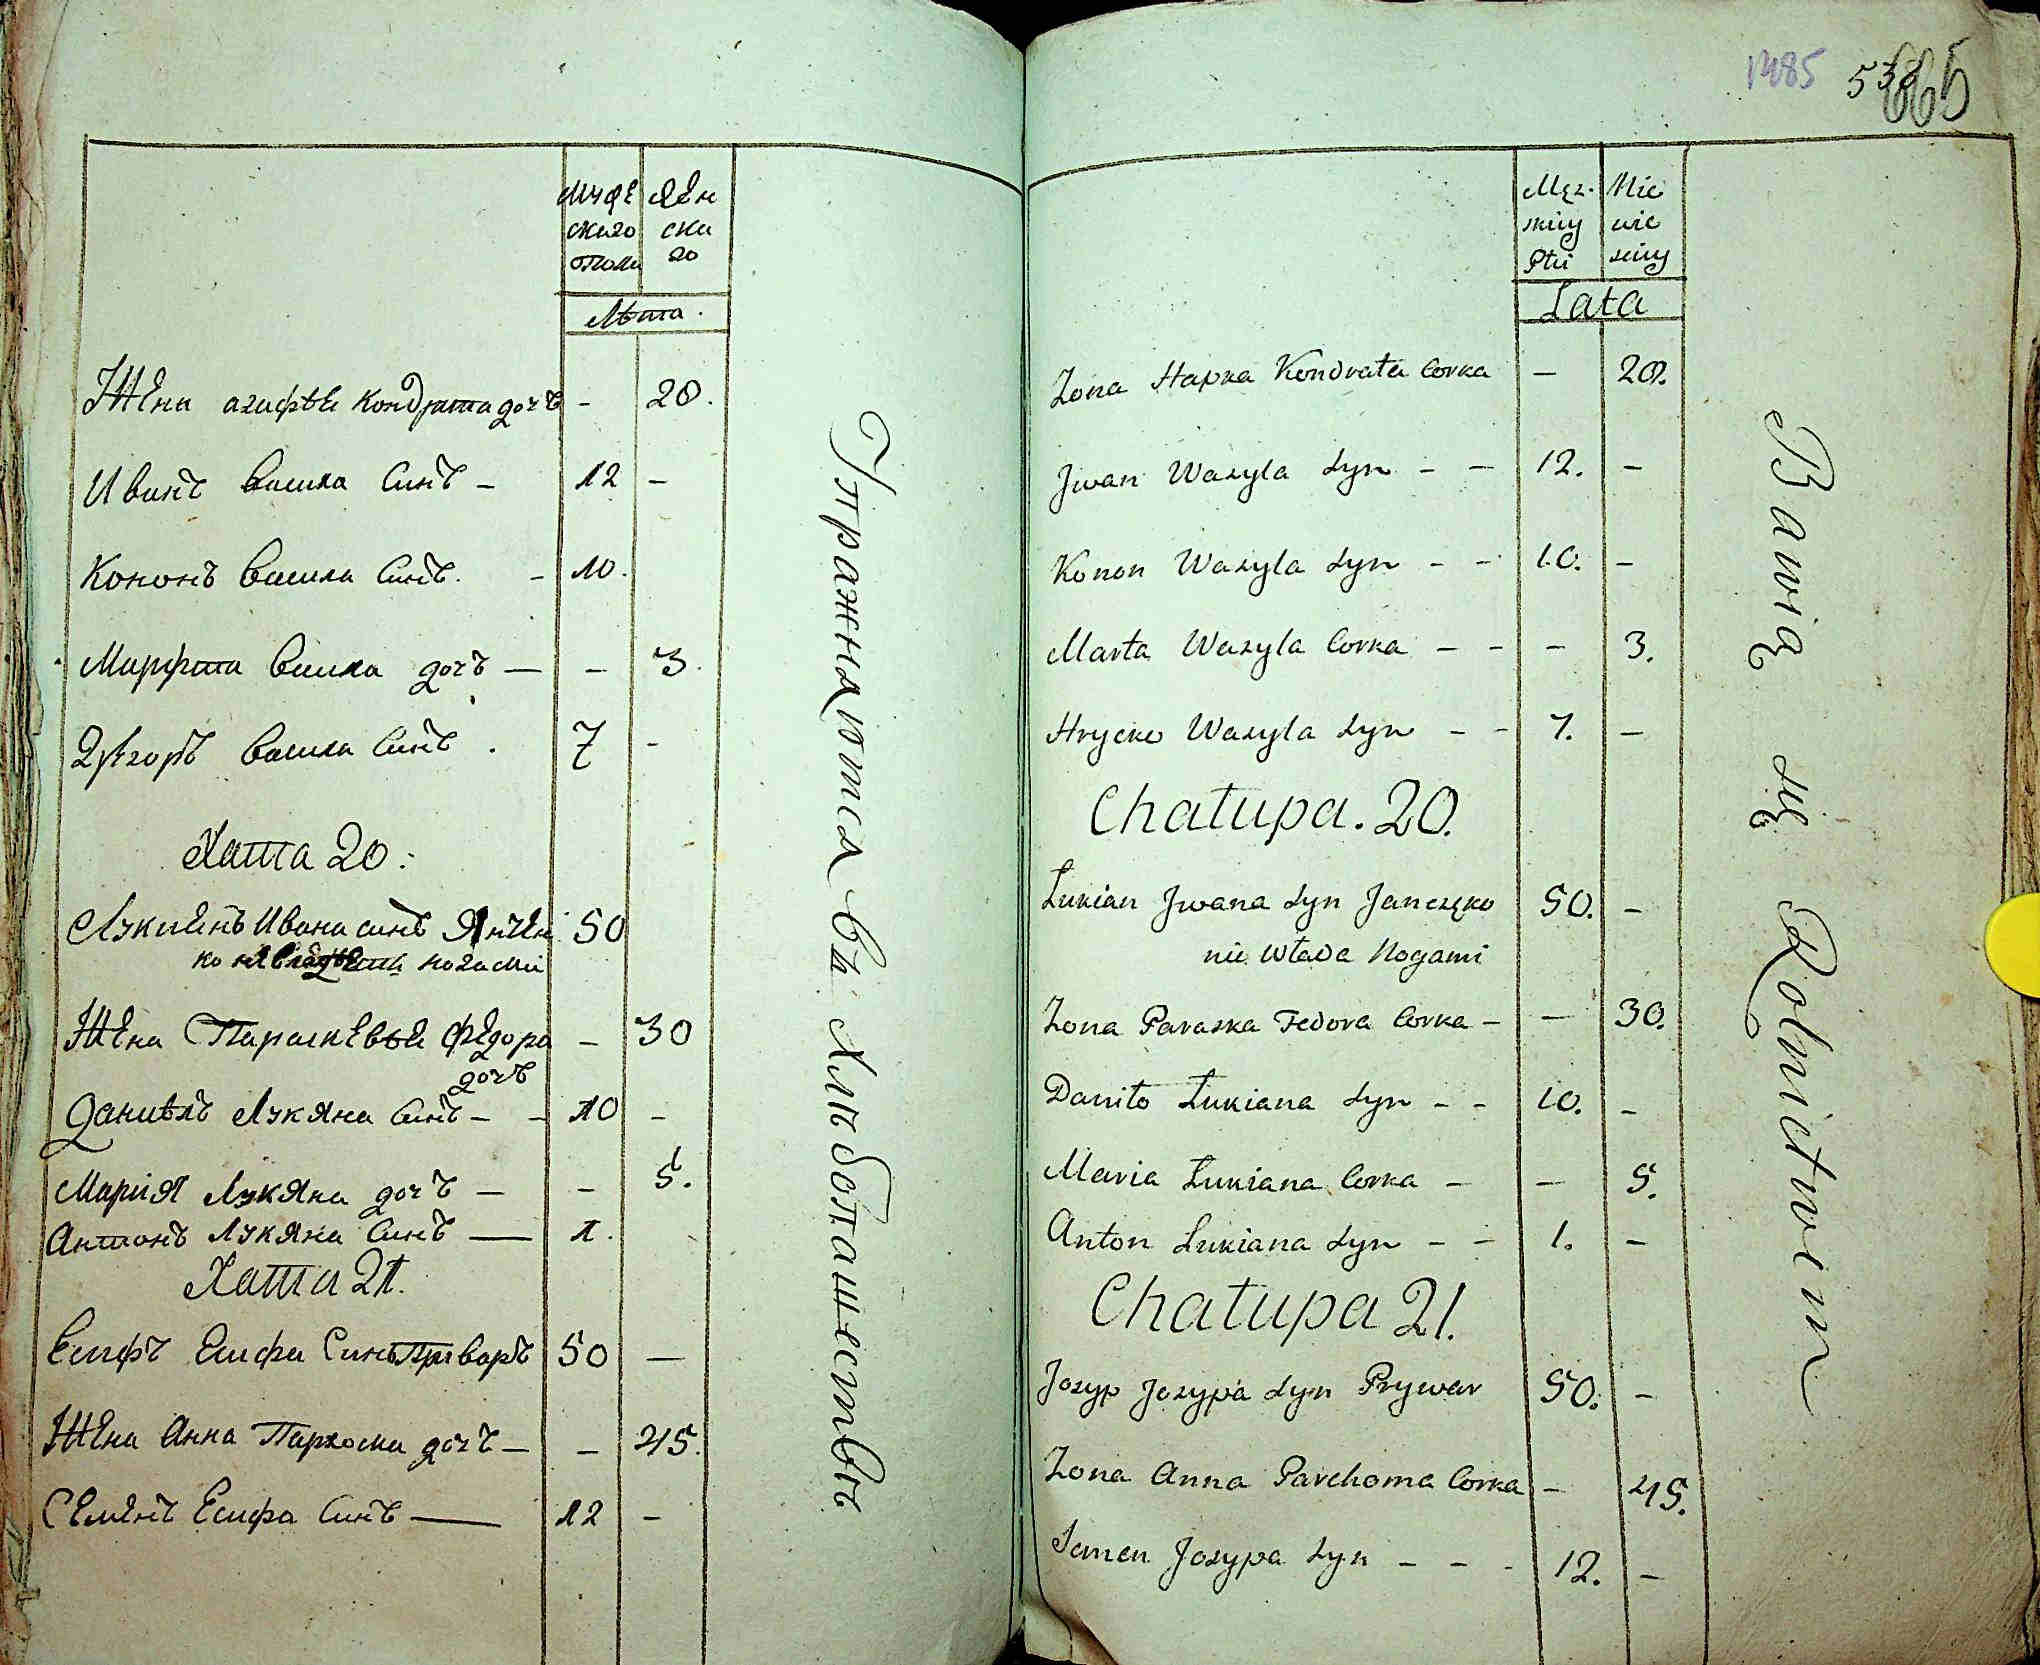 Муже
ского
пола
Жен
ска
го
Лѣта.
Жена агафѣя Кондрата дочъ - 20.
Иванъ Васила Синъ - 12 -
Кононъ Васила Синъ. - 10.
Марфта Васила дочъ - - 3.
Григоръ Васила Синъ . 7 -
Хата 20.
Лукиенъ Ивана синъ Янчен 50
ко не владеетъ ногами
Жена Параскевѣя Федора - 30
дочъ
Даниелъ Лукяна Синъ - - 10 -
Мария Лукяна дочъ - - 5.
Антонъ Лукяна Синъ - 1.
Хата 21.
Есифъ Есифа Синъ Приваръ 50 -
Жена Анна Пархома дочъ - - 45.
Семенъ Есифа Синъ - 12 -
Упражняются въ Хлѣбопашествѣ
1485 538 665
Męz-
skiey
Płci
Nie
wie
sciey
Lata
Zona Hapka Kondrata Corka - 20.
Jwan Wasyla Syn - - 12. -
Konon Wasyla Syn - - 10. -
Marta Wasyla Corka - - - 3.
Hrycko Wasyla Syn - - 7. -
Chałupa. 20.
Łukian Jwana Syn Janczęko 50. -
nie Włada Nogami
Zona Paraska Fedora Corka - - 30.
Daniło Łukiana Syn - - 10. -
Maria Łukiana Corka - - 5.
Anton Łukiana Syn - - 1. -
Chałupa 21.
Jozyp Jozypa Syn Prywar 50. -
Zona Anna Parchoma Corka - 45.
Semen Jozypa Syn - - - 12. -
Bawią się Rolnictwem